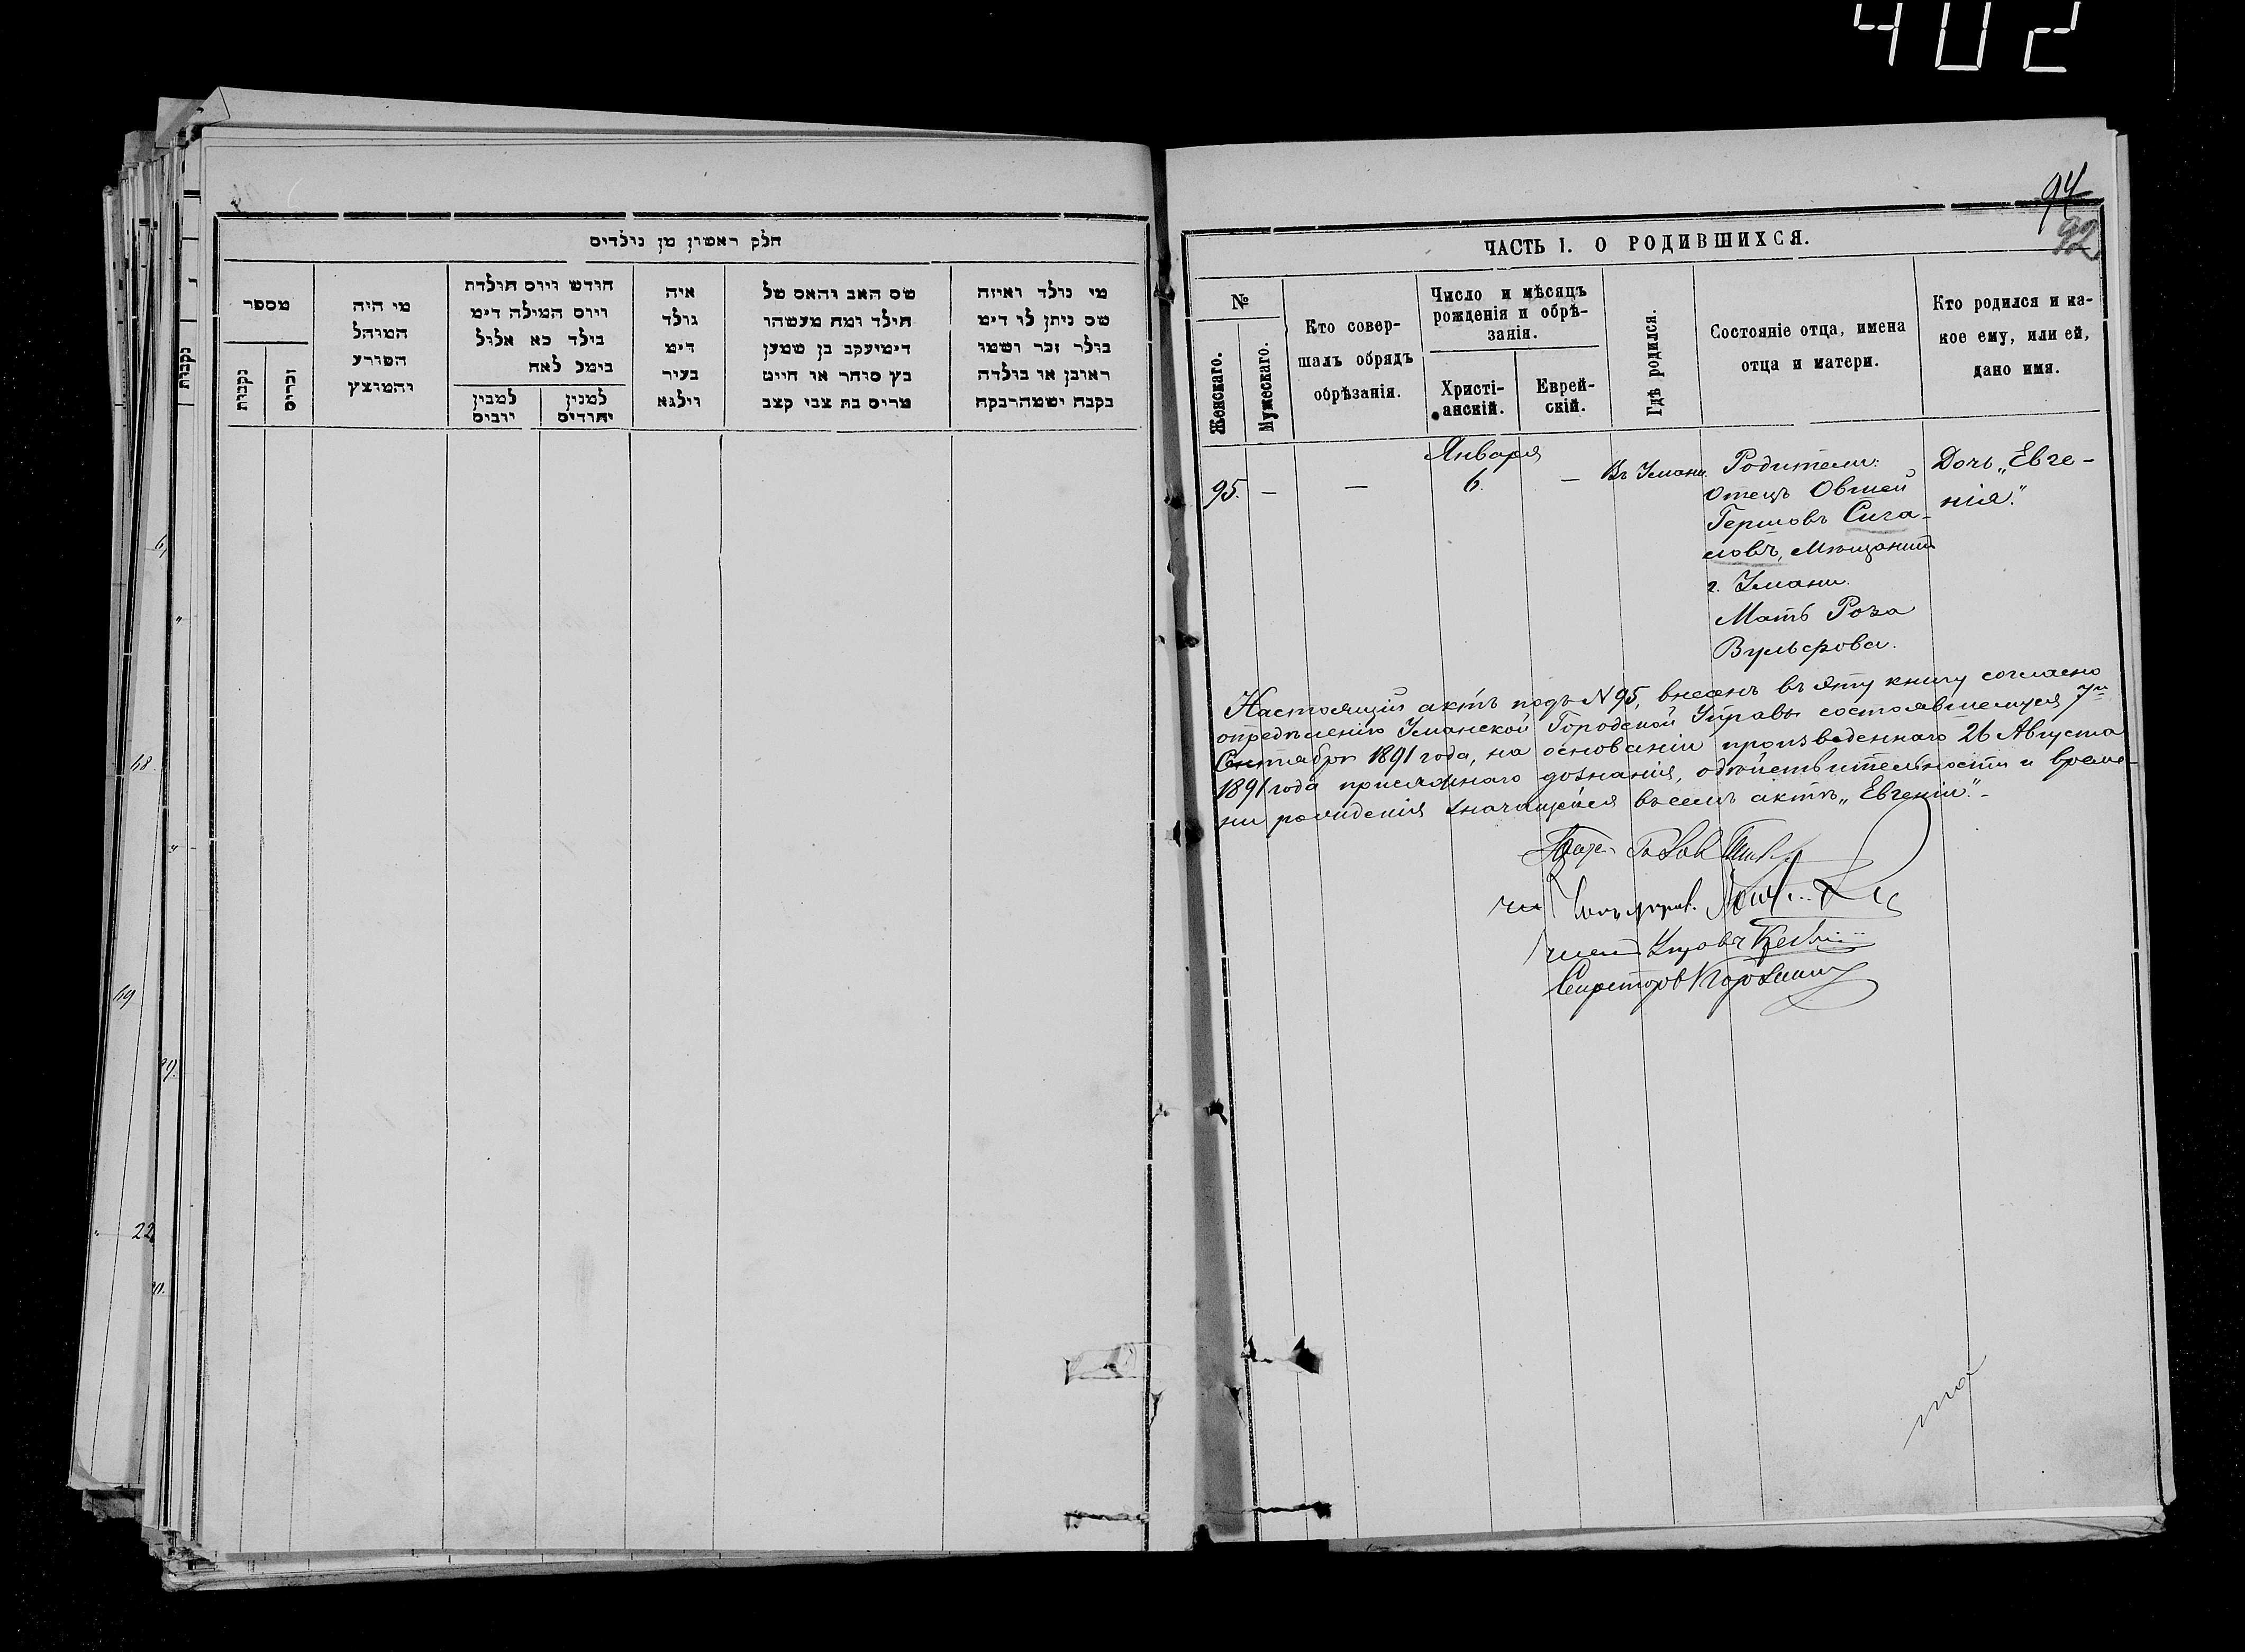 402
חלק ראשון מן נולדים
מספר
נקבות
זכרים
מי היה
המוהל
הפורע
והמוצץ
חודש ויום הולדת
ויום המילה דימ
בילד כא אלול
בימל לאח
למנין
יהודים
איה
נולד
דימ
בעיר
ווילגא
שם האב והאם של
הילד ומח מעשהו
דימיעקב בן שמען
כץ סוחר או חייט
מרים בת צבי קצב
מי נולד ואיזה
שם ניתן לו דימ
ראובן או בולדה
נקבות
94
92
ЧАСТЬ I. О РОДИВШИХСЯ.
№
Женскаго.
Мужескаго.
Кто совер-
шалъ обрядъ
обрѣзанія.
Число и мѣсяцъ
рожденія и обрѣ-
занія.
Христі-
анскій.
Еврей-
скій.
Гдѣ родился.
Состояніе отца, имена
отца и матери.
Кто родился и ка-
кое ему, или ей,
дано имя.
95. — — Января 6. — Въ Умани.
Родители:
Отецъ Овшей
Гершовъ Сига-
ловъ, Мѣщанинъ
г. Умани.
Мать Роза
Вульфова.
Дочь „Евге-
нія."
Настоящій актъ подъ N 95, внесенъ въ эту книгу согласно
опредѣленію Уманской Городской Управы состоявшемуся 7го
Сентября 1891 года, на основаніи произведеннаго 26 Августа
1891 года присяжнаго дознанія, о дѣйствительности и време-
ни рожденія значащейся въ семъ актѣ „Евгеніи".-
Членъ Управы
Секретарь
68.
69
22